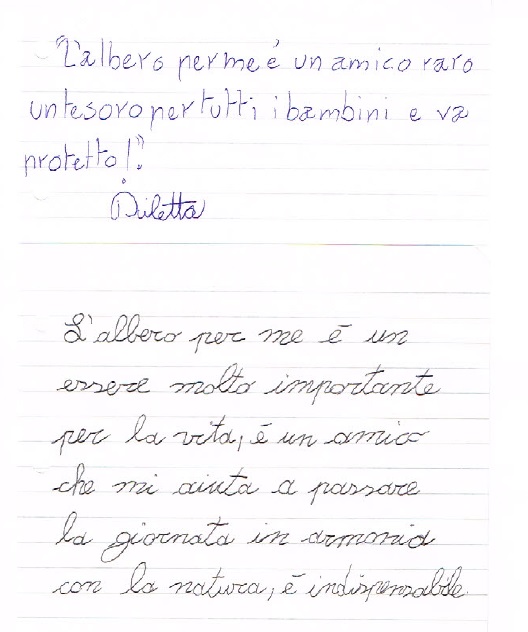 "L'albero per me é un amico raro
un tesoro per tutti i bambini e va
protetto!"
Diletta
L'albero per me é un
essere molto importante
per la vita, é un amico
che mi aiuta a passare
la giornata in armonia
con la natura, é indispensabile